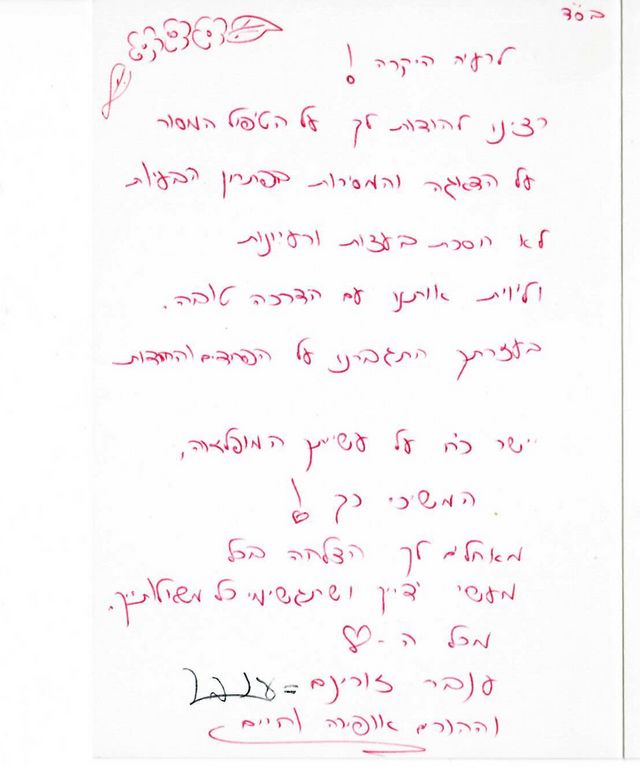 בס"ד
לרעיה היקרה!
רצינו להודות לך על הטיפול המסור
על הדאגה והמסירות בפתרון הבעיות
לא חסכת בעצות ורעיונות
וליווית אותנו עם הדרכה טובה.
בעזרתך התגברנו על הפחדים והחרדות
יישר כח על עשייתך המופלאה,
המשיכי כך!
מאחלים לך הצלחה בכל
מעשי ידייך ושתגשימי כל משאלותייך.
מכל ה-♡
ענבר זורינס = ענבר
וההורים אופירה וחיים